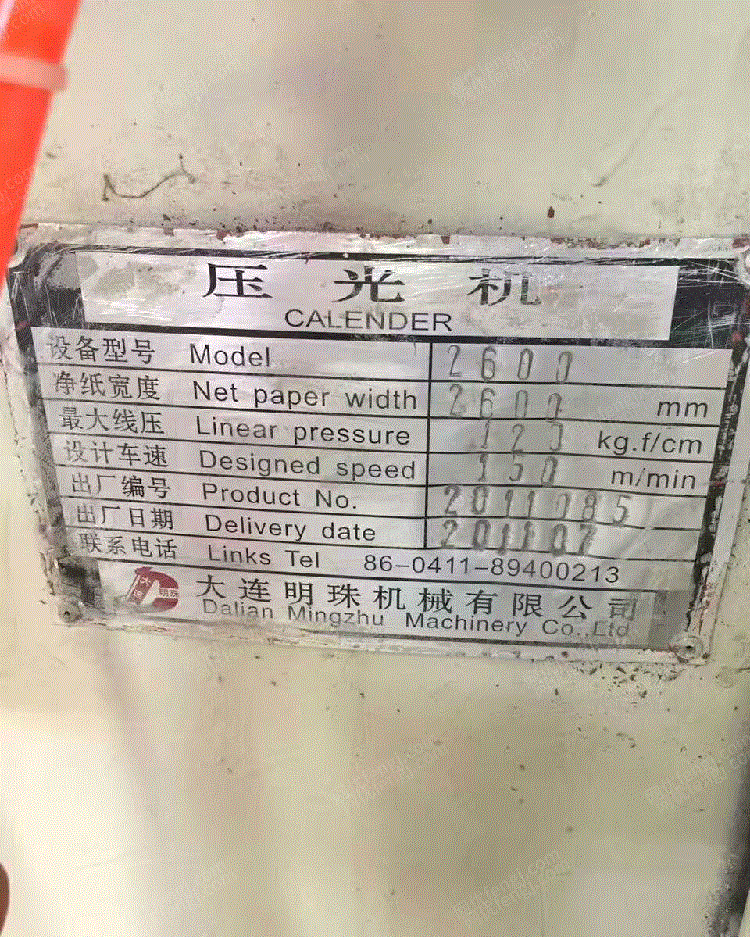 压光机
CALENDER
设备型号 Model 2600
净纸宽度 Net paper width 2600 mm
最大线压 Linear pressure kg.f/cm
设计车速 Designed speed 150 m/min
出厂编号 Product No. 2011085
出厂日期 Delivery date 201107
联系电话 Links Tel 86-0411-89400213
大连明珠机械有限公司
Dalian Mingzhu Machinery Co.,Ltd